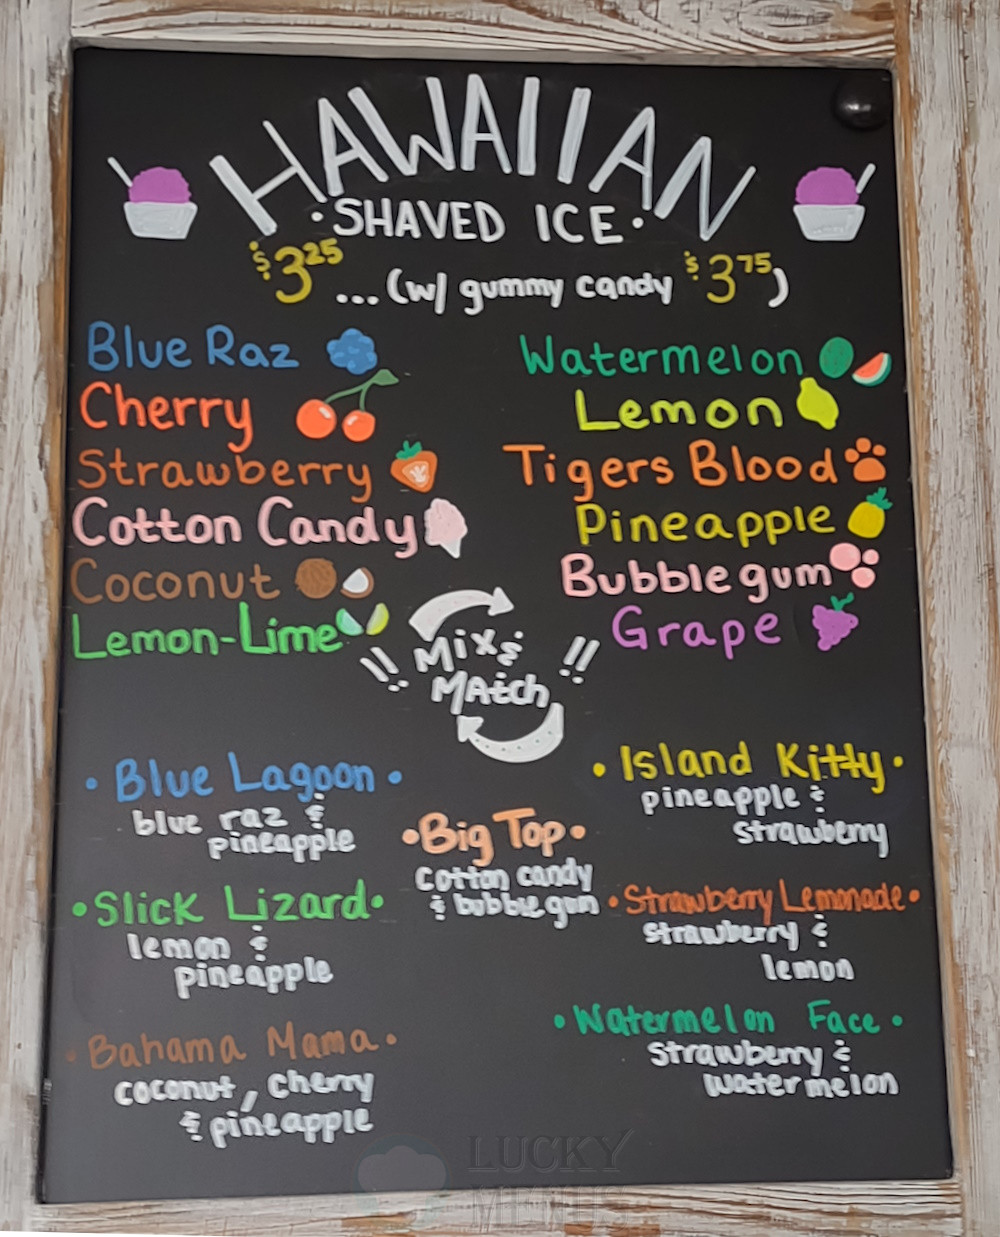 HAWAIIAN
• SHAVED ICE •
$3.25 ... (w/ gummy candy $3.75)
Blue Raz
Cherry
Strawberry
Cotton Candy
Coconut
Lemon-Lime
Watermelon
Lemon
Tigers Blood
Pineapple
Bubblegum
Grape
!! Mix & !!
Match
• Blue Lagoon •
blue raz &
pineapple
• Slick Lizard •
lemon &
pineapple
• Bahama Mama •
coconut, cherry
& pineapple
• Big Top •
cotton candy
& bubblegum
• Island Kitty •
pineapple &
strawberry
• Strawberry Lemonade •
strawberry &
lemon
• Watermelon Face •
strawberry &
watermelon
LUCKY
MENUS